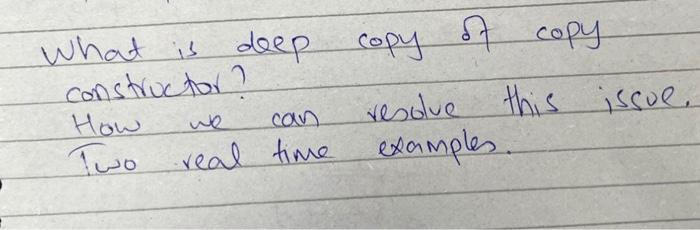 What is deep copy of copy
constructor?
How we can resolve this issue.
Two real time examples.